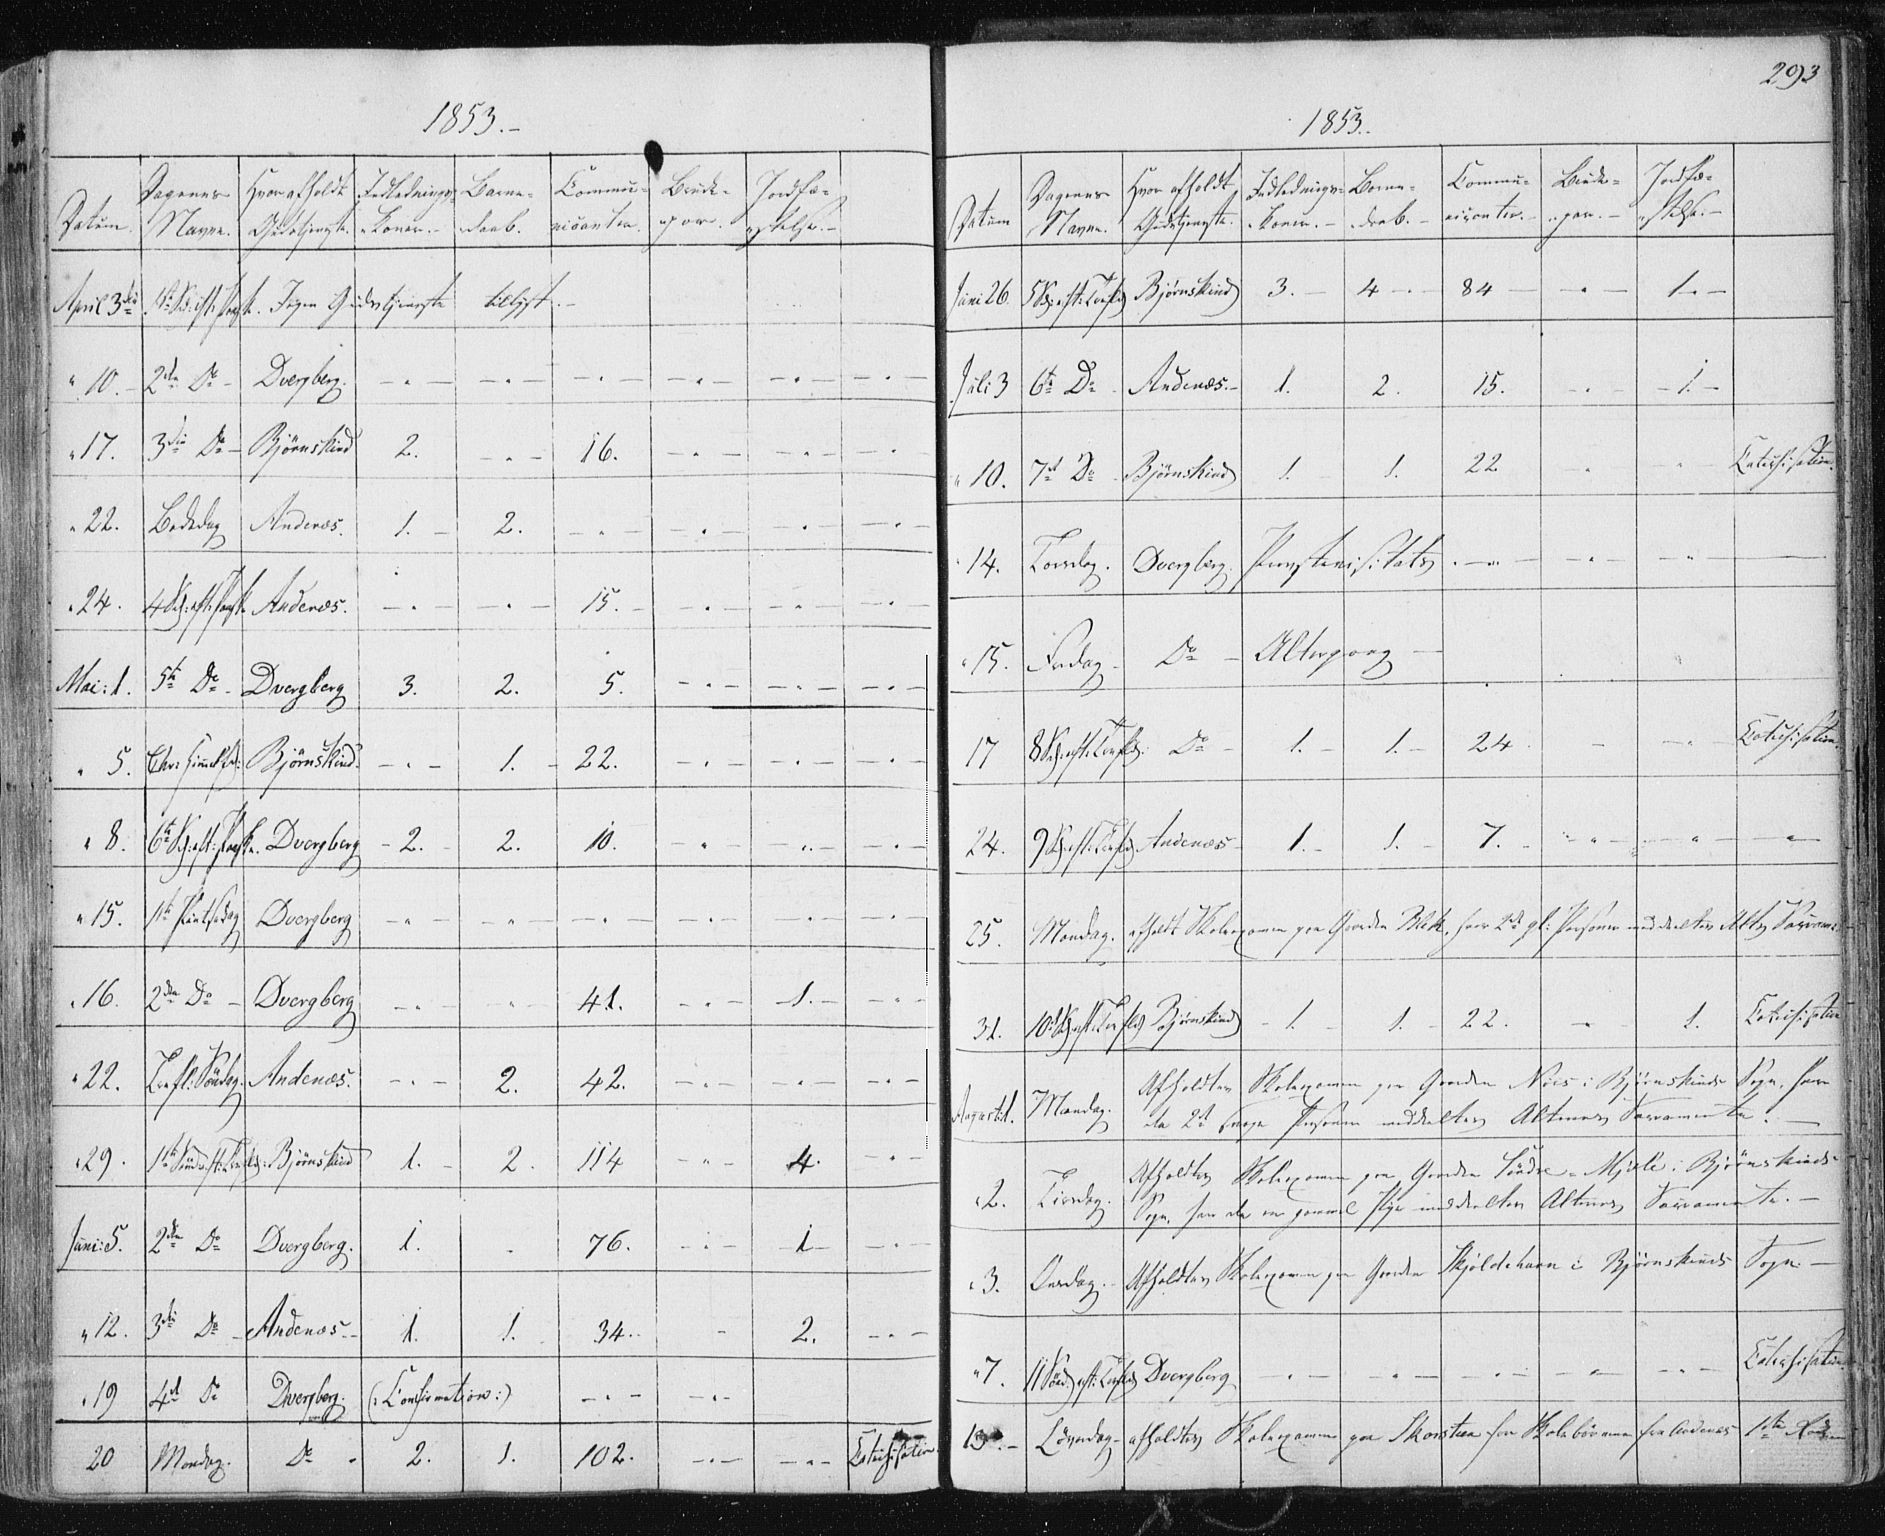 1853.-
Datum. Dagenes Navne. Hvor afholdt Gudstjeneste. Indlednings-koner.- Barne-daab. Communicanter. Brude-par. Jordfæ-stelse.-
April 3die 1ste S: eft: Paask. Ingen Gudstjeneste tillyst.-
" 10.- 2den Do- Dvergberg. - " - - " - - " - - " - - " - - " -
" 17. 3die Do- Bjørnskind 2. - " - 16. - " - - " - - " -
" 22. Bededag Andenæs. 1.- 2. - " - - " - - " - - " -
" 24. 4 S: eft: Paask. Andenæs. - " - - " - 15.- - " - - " - - " -
Mai: 1. 5te Do- Dvergberg 3. 2. 5. - " - - " - - " -
" 5. Chr: Himmelf: Bjørnskind.- - " - 1. - 22. - " - - " - - " -
" 8. 6te S: eft: Paask. Dvergberg - 2.- 2. 10. " " - " -
" 15. 1ste Pintsedag Dvergberg - " - - " - - " - - " - - " - - " -
" 16. 2den Do - Dvergberg - " - - " - 41. - " - -1.- - " -
" 22. Trefl: Søndag. Andenæs. - " - 2. 42. - " - - " - - " -
" 29. 1ste Sønd: eft: Trefld: Bjørnskind 1.- 2. 114 - " - 4. - " -
Juni: 5. 2den Do Dvergberg. 1. . 76. - " - 1- - " -
" 12. 3die Do - Andenæs.- 1. 1. 34.- - 2. - " -
" 19 4de Do Dvergberg. (: Confirmation :) - " - - " -
20 Mondag. Do " 2. 1. 102. - " - - " - Catechisation.
293
1853.
Datum Dagenes Navne. Hvor afholdt Gudstjeneste. Indlednings-koner.- Barne-daab.- Communicanter.- Brude-par.- Jordfæ-stelse.-
Juni 26. 5 S: eft: Trefld Bjørnskind 3.- 4 - 84 - - " - 1.-
Juli 3 6te Do- Andenæs.- 1. 2. 15. - " - - 1. -
" 10. 7de Do- Bjørnskind 1. 1. 22 " " Catechisation.
" 14. Torsdag. Dvergberg. Provstevisitats. - " - - " - "
" 15. Fredag- Do - Altergang -
17 8 S: eft: Trefld: Do- 1.- 1.- 24 - - " - Catechisation.
24. 9 S: eft: Trefld Andenæs- 1.- 1.- 7.- " " "
25. Mondag. afholdt Skoleexamen paa Gaarden Bleik, hvor 2de gl: Personer meddeeltes Alts Sacram:
31. 10de S: eft: Trefld Bjørnskind - 1.- 1. - 22. " 1. Catechisation
August 1. Mandag. Afholdtes Skoleexamen paa Gaarden Nøis i Bjørnskinds Sogn, hvor
da 2de svage Personer meddeeltes Alterens Sacramente.-
" 2. Tirsdag. Afholdtes Skoleexamen paa Gaarden Søndre-Mjele i Bjørnskinds-
Sogn, hvor da en gammel Pige meddeeltes Alterens Sacramente.-
" 3. Onsdag.- Afholdtes Skoleexamen paa Gaarden Skjoldehavn i Bjørnskinds Sogn-
" 7. 11 Sønd: eft: Trefld Dvergberg - " - - " - - " - - " - - " - Catechisation
13.- Løverdag- afholdtes Skoleexamen paa Skarsteen for Skolebørnene fra Andenæs 1ste